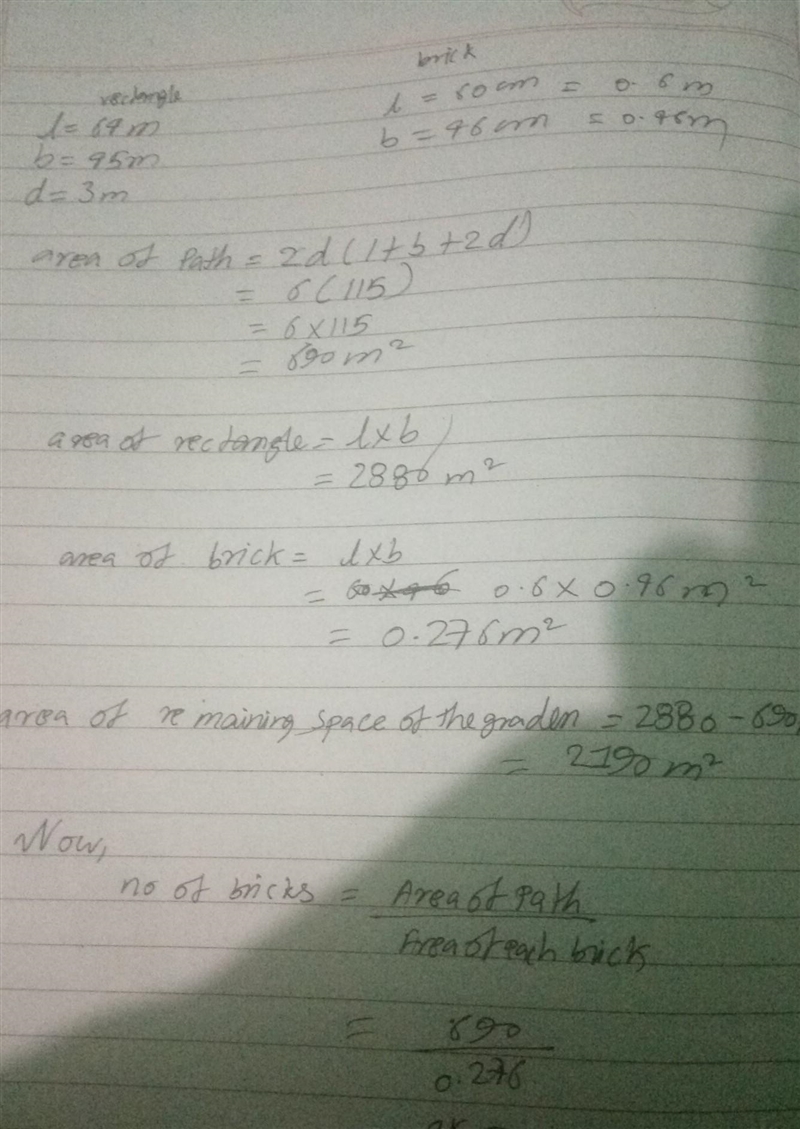 rectangle
l = 64 m
b = 45 m
d = 3 m
brick
l = 60 cm = 0.6 m
b = 46 cm = 0.46 m
area of Path = 2d (l + b + 2d)
= 6 (115)
= 6 × 115
= 690 m²
area of rectangle = l × b
= 2880 m²
area of brick = l × b
= 60 × 46 0.6 × 0.46 m²
= 0.276 m²
area of remaining space of the graden = 2880 - 690
= 2190 m²
Now,
no of bricks = Area of Path
Area of each brick
= 690
0.276